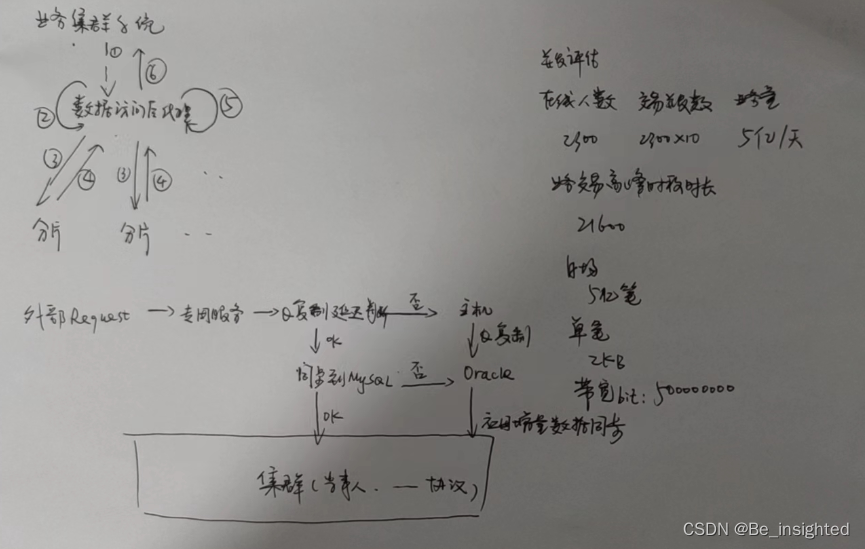 业务集群系统
①
⑥
②
数据访问后代理
⑤
③
④
③
④
··
分片
分片
··
外部Request
专用服务
Q复制延迟判断
否
主机
OK
Q复制
同步到MySQL
否
Oracle
OK
应用增量数据同步
集群(当事人. — 协议)
并发评估
在线人数 交易并发数 业务量
2300 2300×10 5亿/天
业务交易高峰时段时长
21600
日均
5亿笔
单笔
2KB
带宽bit: 500000000
CSDN @Be_insighted